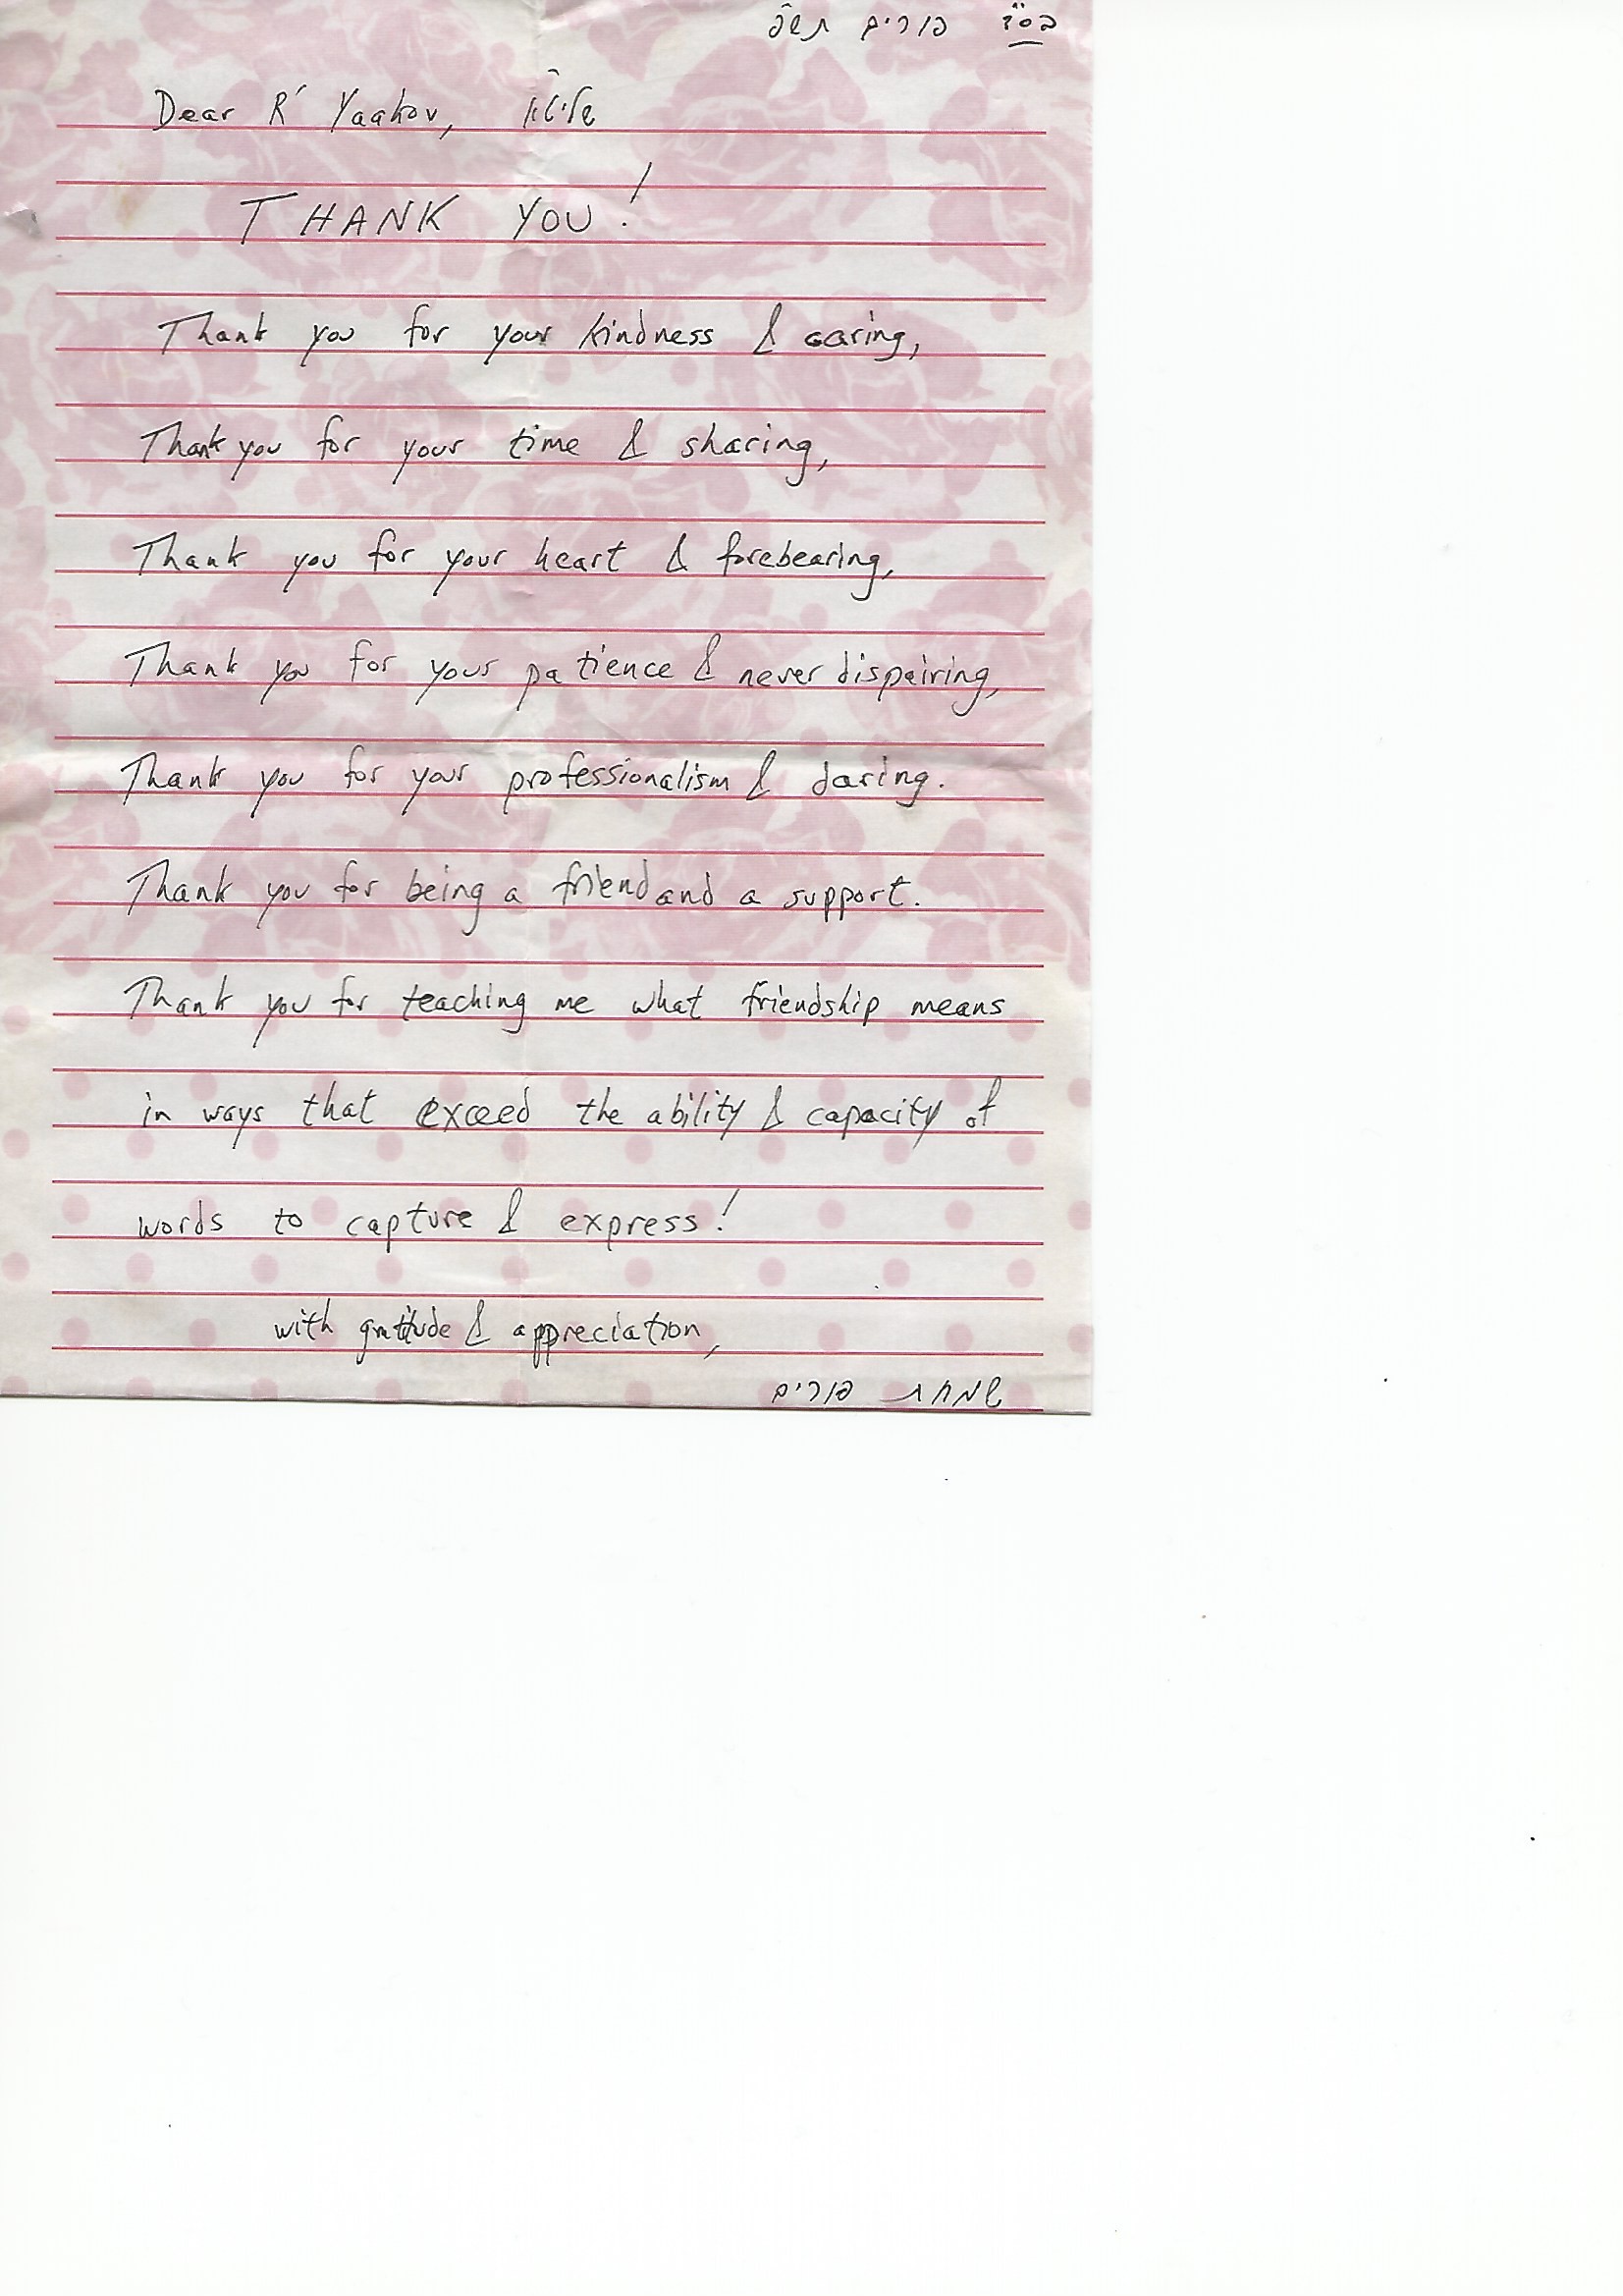 בס"ד פורים תש"פ
Dear R' Yaakov, שליט"א
THANK YOU!
Thank you for your kindness & caring,
Thank you for your time & sharing,
Thank you for your heart & forebearing,
Thank you for your patience & never dispairing,
Thank you for your professionalism & daring.
Thank you for being a friend and a support.
Thank you for teaching me what friendship means
in ways that exceed the ability & capacity of
words to capture & express!
with gratitude & appreciation,
שמחת פורים